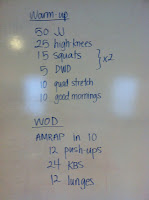 Warm up
50 JJ
25 high knees
15 squats
5 DWD
} x2
10 quad stretch
10 good mornings
WOD
AMRAP in 10
12 push-ups
24 KBS
12 lunges